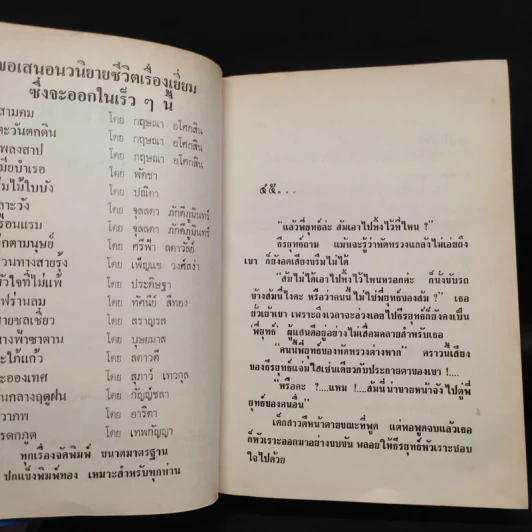 ขอเสนอนวนิยายชีวิตเรื่องเยี่ยม
ซึ่งจะออกในเร็ว ๆ นี้
สามคม โดย กฤษณา อโศกสิน
ตะวันตกดิน โดย กฤษณา อโศกสิน
เพลงสาป โดย กฤษณา อโศกสิน
เมียบำเรอ โดย พัดชา
ร่มไม้ใบบัง โดย ปณิตา
โดย จุลลดา ภักดีภูมินทร์
เรือนแรม โดย จุลลดา ภักดีภูมินทร์
โดย ศรีฟ้า ลดาวัลย์
โดย เพ็ญแข วงศ์สง่า
หัวใจที่ไม่แพ้ โดย ประดิษฐา
โดย ทัศนีย์ สีทอง
โดย สราญรส
นางฟ้าซาตาน โดย บุษยมาส
โดย ลดาวดี
ละอองเทศ โดย สุภาว์ เทวกุล
โดย กัญญ์ชลา
โดย อาริตา
โดย เทพกัญญา
ทุกเรื่องจัดพิมพ์ ขนาดมาตรฐาน
ปกแข็งพิมพ์ทอง เหมาะสำหรับทุกท่าน
๔๕...
"แล้วพี่ยุทธ์ล่ะ ส้มเอาไปทิ้งไว้ที่ไหน ?"
ธีรยุทธ์ถาม แม้จะรู้ว่าหัตทรวงแกล้งไม่เอ่ยถึง
เขา ก็ยังอดเสียงขรึมไม่ได้
"ส้มไม่ได้เอาไปทิ้งไว้ไหนหรอกค่ะ ก็นั่งขับรถ
ข้างส้มนี่ไงคะ หรือว่าคนนี้ไม่ใช่พี่ยุทธ์ของส้ม ?" เธอ
ยั่วเย้าเขา เพราะถึงเวลาจะล่วงเลยไปธีรยุทธ์ก็ยังคงเป็น
'พี่ยุทธ์' ผู้แสนดีอยู่อย่างไม่เสื่อมคลายสำหรับเธอ
"คนนี้พี่ยุทธ์ของหัตทรวงต่างหาก" คราวนี้เสียง
ของธีรยุทธ์แจ่มใสเช่นเดียวกับประกายตาของเขา !....
"หรือคะ ?....แหม ! ส้มนี่น่าขายหน้าจังไปตู่พี่
ยุทธ์ของคนอื่น"
เด็กสาวตีหน้าตายขณะที่พูด แต่พอพูดจบแล้วเธอ
ก็หัวเราะออกมาอย่างขบขัน พลอยให้ธีรยุทธ์หัวเราะชอบ
ใจไปด้วย